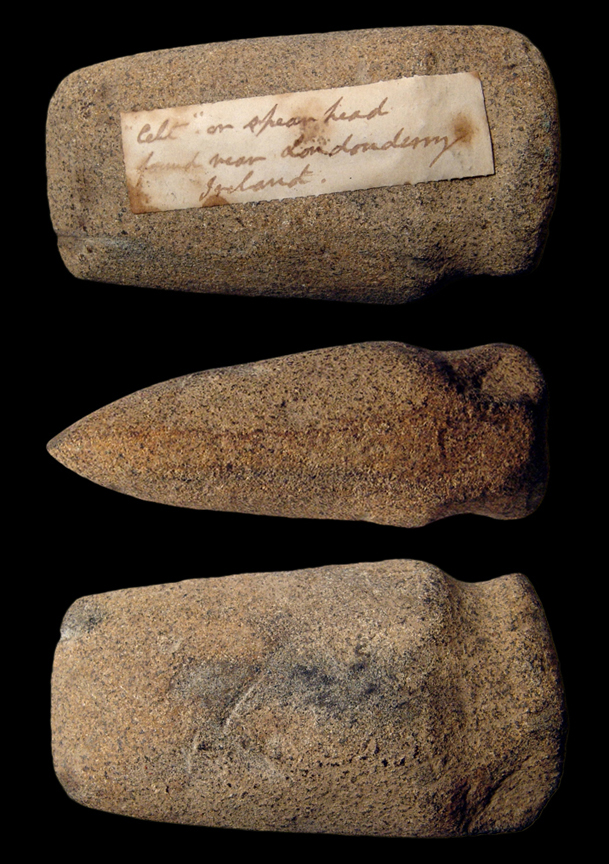 "Celt" or spear head
found near Londonderry
Ireland.